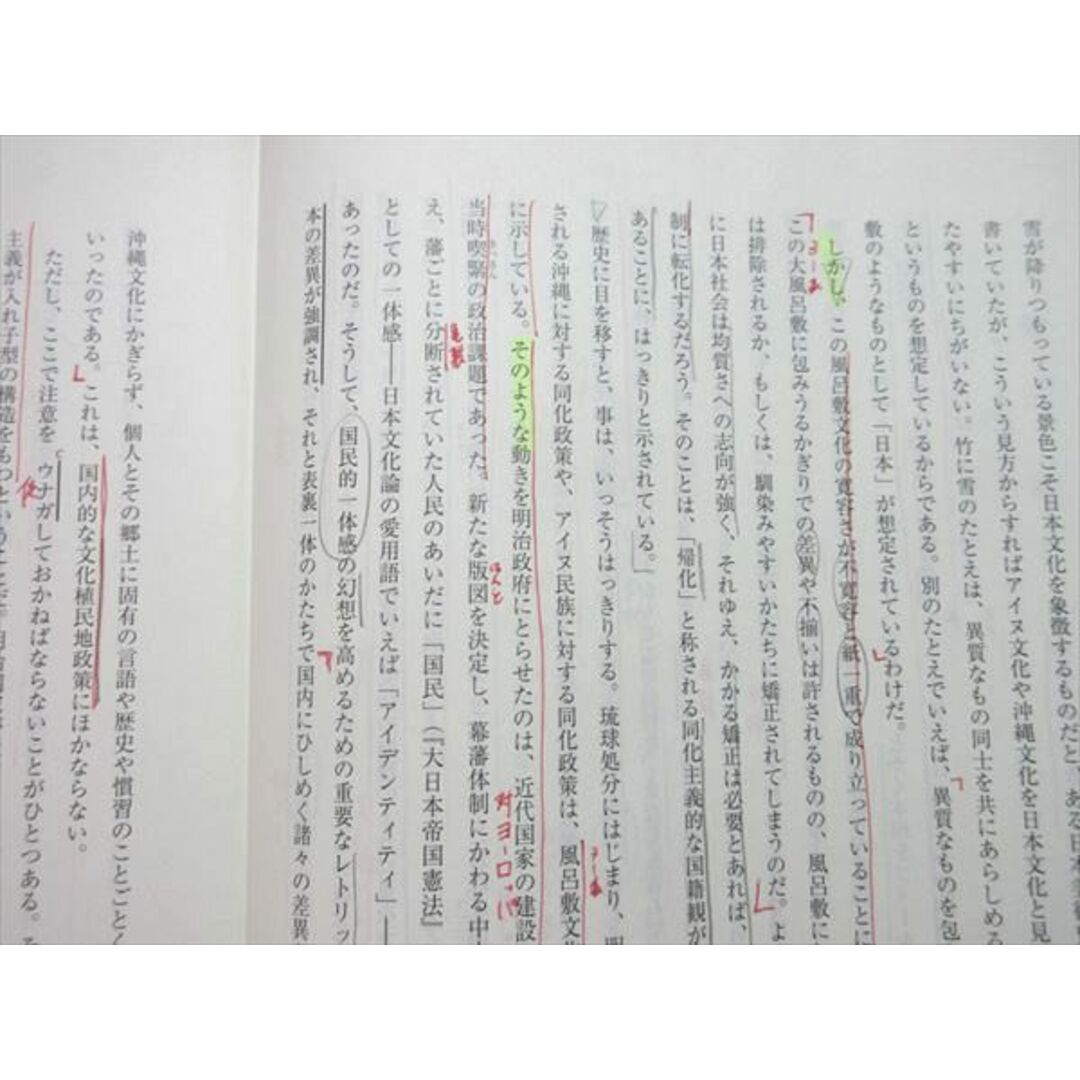 雪が降りつもっている景色こそ日本文化を象徴するものだと、ある日本
書いていたが、こういう見方からすればアイヌ文化や沖縄文化を日本文化と見
たやすいにちがいない。竹に雪のたとえは、異質なもの同士を共にあらしめる
というものを想定しているからである。別のたとえでいえば、異質なものを包
敷のようなものとして「日本」が想定されているわけだ。
しかし、この風呂敷文化の寛容さが不寛容と紙一重で成り立っていることに
この大風呂敷に包みうるかぎりでの差異や不揃いは許されるものの、風呂敷に
は排除されるか、もしくは、馴染みやすいかたちに矯正されてしまうのだ。よ
に日本社会は均質さへの志向が強く、それゆえ、かかる矯正は必要とあれば、
制に転化するだろう。そのことは、「帰化」と称される同化主義的な国籍観が
あることに、はっきりと示されている。
歴史に目を移すと、事は、いっそうはっきりする。琉球処分にはじまり、
される沖縄に対する同化政策や、アイヌ民族に対する同化政策は、風呂敷文
に示している。そのような動きを明治政府にとらせたのは、近代国家の建設
対ヨーロッパ
当時喫緊の政治課題であった。新たな版図を決定し、幕藩体制にかわる中
きっきん
はんと
え、藩ごとに分断されていた人民のあいだに「国民」(『大日本帝国憲法』
としての一体感――日本文化論の愛用語でいえば「アイデンティティ」――
あったのだ。そうして、国民的一体感の幻想を高めるための重要なレトリッ
本の差異が強調され、それと表裏一体のかたちで国内にひしめく諸々の差異
沖縄文化にかぎらず、個人とその郷土に固有の言語や歴史や慣習のことごとく
いったのである。これは、国内的な文化植民地政策にほかならない。
ただし、ここで注意をウナガしておかねばならないことがひとつある。
C
促
主義が入れ子型の構造をもつということだ。